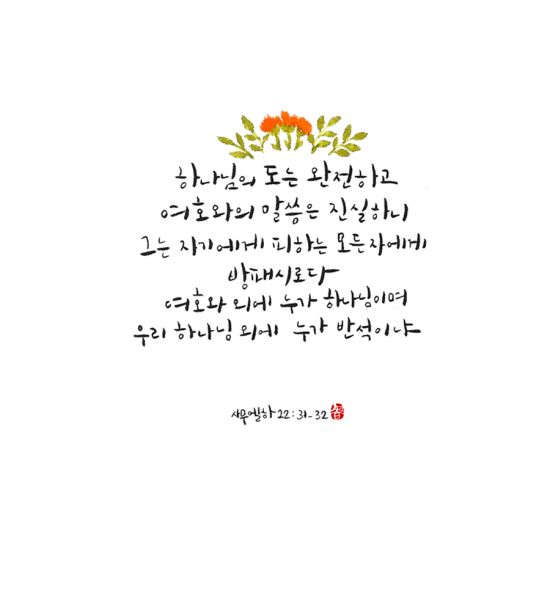 하나님의 도는 완전하고
여호와의 말씀은 진실하니
그는 자기에게 피하는 모든자에게
방패시로다
여호와 외에 누가 하나님이며
우리 하나님 외에 누가 반석이냐
사무엘하 22:31-32